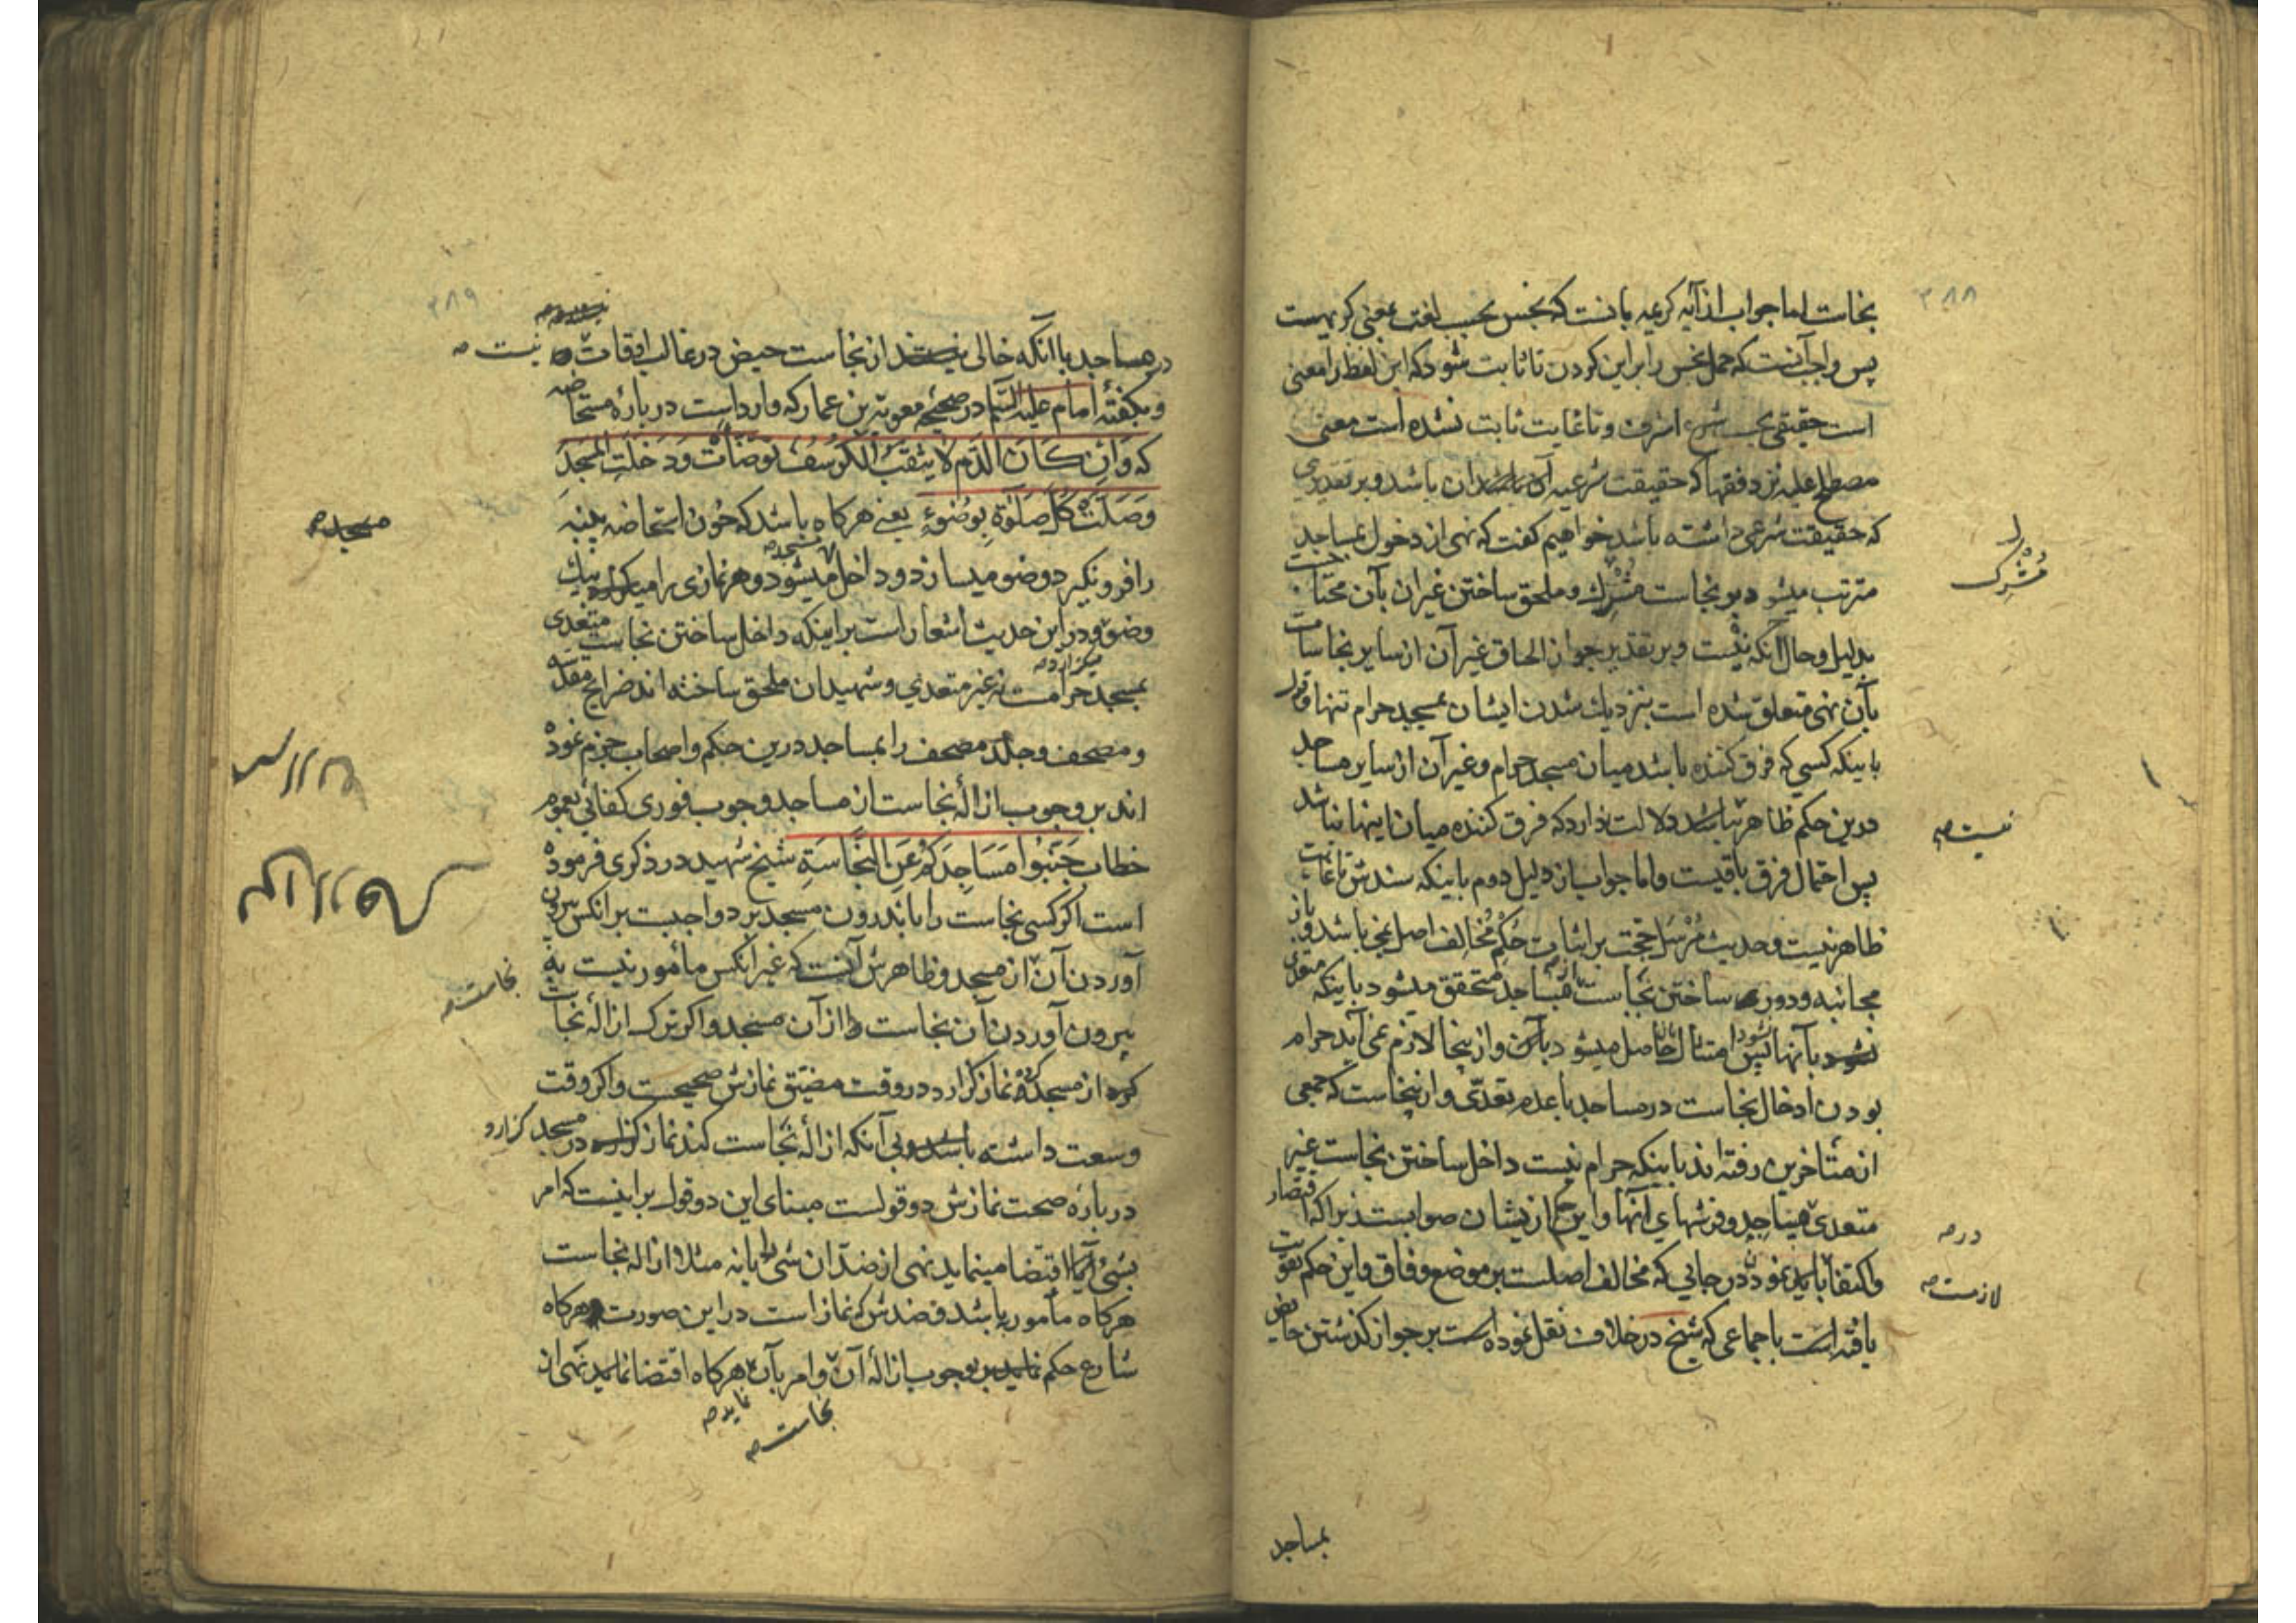 ۳۸۸
نجاست اما جواب از آیه کریمه بانست که نجس بحسب لغت بمعنی کریهست
پس واجب آنست که حمل نجس را بر این کردن تا ثابت شود که این لفظ را معنی
است حقیقی بحسب شرع اشرف و تا غایت ثابت نشده است معنی
مصطلح علیه نزد فقها که حقیقت شرعیه آن باشد و بر تقدیری
که حقیقت شرعی داشته باشد خواهیم کفت که نهی از دخول بمساجد
مترتب میشود بر نجاست مشرک و ملحق ساختن غیر ان بآن محتاجست
بدلیل و حال آنکه نیست و بر تقدیر جواز الحاق غیر آن از سایر نجاسات
بآن نهی متعلق شده است بنزدیك شدن ایشان بمسجد حرام تنها و قول
باینکه کسی که فرق کننده باشد میان مسجد حرام و غیر آن از سایر مساجد
درین حکم ظاهر نباشد دلالت ندارد که فرق کننده میان اینها نباشد
پس احتمال فرق باقیست و اما جواب از دلیل دوم باینکه سندش تا غایت
ظاهر نیست و حدیث مُرْسَل حجت بر اثبات حُکمِ مُخالِف اصل نمی باشد و باز
مجانبه و دور ساختن نجاست از مساجد متحقق میشود باینکه متعدی
نشود بآنها پس امتثال حاصل میشود بآن و از ینجا لازم نمی آید حرام
بودن ادخال نجاست در مساجد با عدم تعدّی و از ینجاست که جمعی
از متأخرین رفته اند باینکه حرام نیست داخل ساختن نجاست غیر
متعدی مساجد و فرشهای آنها و این حکم از یشان صوابست زیرا که اقتصار
و اکتفا باید نمودن در جایی که مخالف اصلست بر موضع وفاق و این حکم تقویت
یافته است باجماعی که شیخ در خلاف نقل نموده است بر جواز کذشتن حایض
مُشرِک
نیست صح
در صح
لازمست صح
بمساجد
۳۸۹
در مساجد با آنکه خالی نیستند از نجاست حیض در غالب اوقات
نیست صح
و بکفتهٔ امام علیه السّلم در صحیحهٔ معویة بن عمار که وارد است در بارهٔ مستحاضه
که وَ اِن کَانَ الدَّم لا یثقب الکُرسُفَ تَوَضَّأتْ وَ دَخَلَتِ المَسجِدَ
وَصَلَّتْ کُلَّ صَلوٰةٍ بِوُضُوءٍ یعنی هرکاه باشد که خون استحاضه پنبه
مسجد صح
را فرو نکیرد وضو میسازد و داخل میشود و هر نمازی را میکند بیك
مسجد صح
وضو و در این حدیث اشعار است بر اینکه داخل ساختن نجاست متعدی
میکزارد صح
بمسجد حرامست نه غیر متعدی و شهیدان ملحق ساخته اند ضرایح مقدسه
و مصحف و جلد مصحف را بمساجد درین حکم و اصحاب جزم نموده
اند بر وجوب ازالهٔ نجاست از مساجد وجوب فوری کفائی بعموم
خطاب جَنِّبُوا مَسَاجِدَکُم عَنِ النَّجَاسَةِ شیخ شهید در ذکری فرموده
است اکر کسی نجاست را باندرون مسجد برد واجبست بر انکس بیرون
آوردن آن از مسجد و ظاهرش آنست که غیر انکس مأمور نیست به
نجاست صح
بیرون آوردن آن نجاست از آن مسجد و اکر ترک ازالهٔ نجاست
کرده از مسجد نماز کزارد در وقت مضیّق نمازش صحیحست و اکر وقت
وسعت داشته باشد و بی آنکه ازالهٔ نجاست کند نماز در مسجد کزارد
در بارهٔ صحت نمازش دو قولست مبنای این دو قول بر اینست که امر
بشیٔ آیا اقتضا مینماید نهی از ضد آن شی را یا نه مثلا ازاله نجاست
هرکاه مأمور به باشد و ضدش که نماز است در این صورت هرکاه
شارع حکم نماید بر وجوب ازالهٔ آن و امر بآن هرکاه اقتضا نماید نهی از
نماید صح
نجاست صح